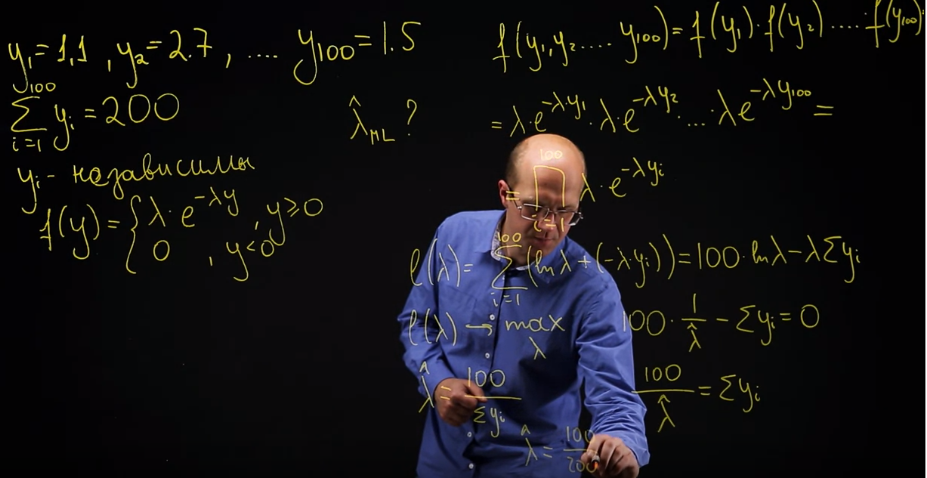 y₁=1,1 , y₂=2.7 , .... y₁₀₀=1.5
∑_{i=1}^{100} yᵢ=200
yᵢ - независимы
f(y)={λ·e^{-λy} , y≥0
0 , y<0
λ̂_ML ?
f(y₁,y₂.... y₁₀₀)=f(y₁)·f(y₂)·....·f(y₁₀₀)=
=λ·e^{-λy₁}·λ·e^{-λy₂}·...·λe^{-λy₁₀₀}=
=∏_{i=1}^{100} λ·e^{-λyᵢ}
ℓ(λ)=∑_{i=1}^{100}(lnλ+(-λ·yᵢ))=100·lnλ-λ∑yᵢ
ℓ(λ)→max_λ
100·1/λ̂-∑yᵢ=0
100/λ̂=∑yᵢ
λ̂=100/∑yᵢ
λ̂=100/200